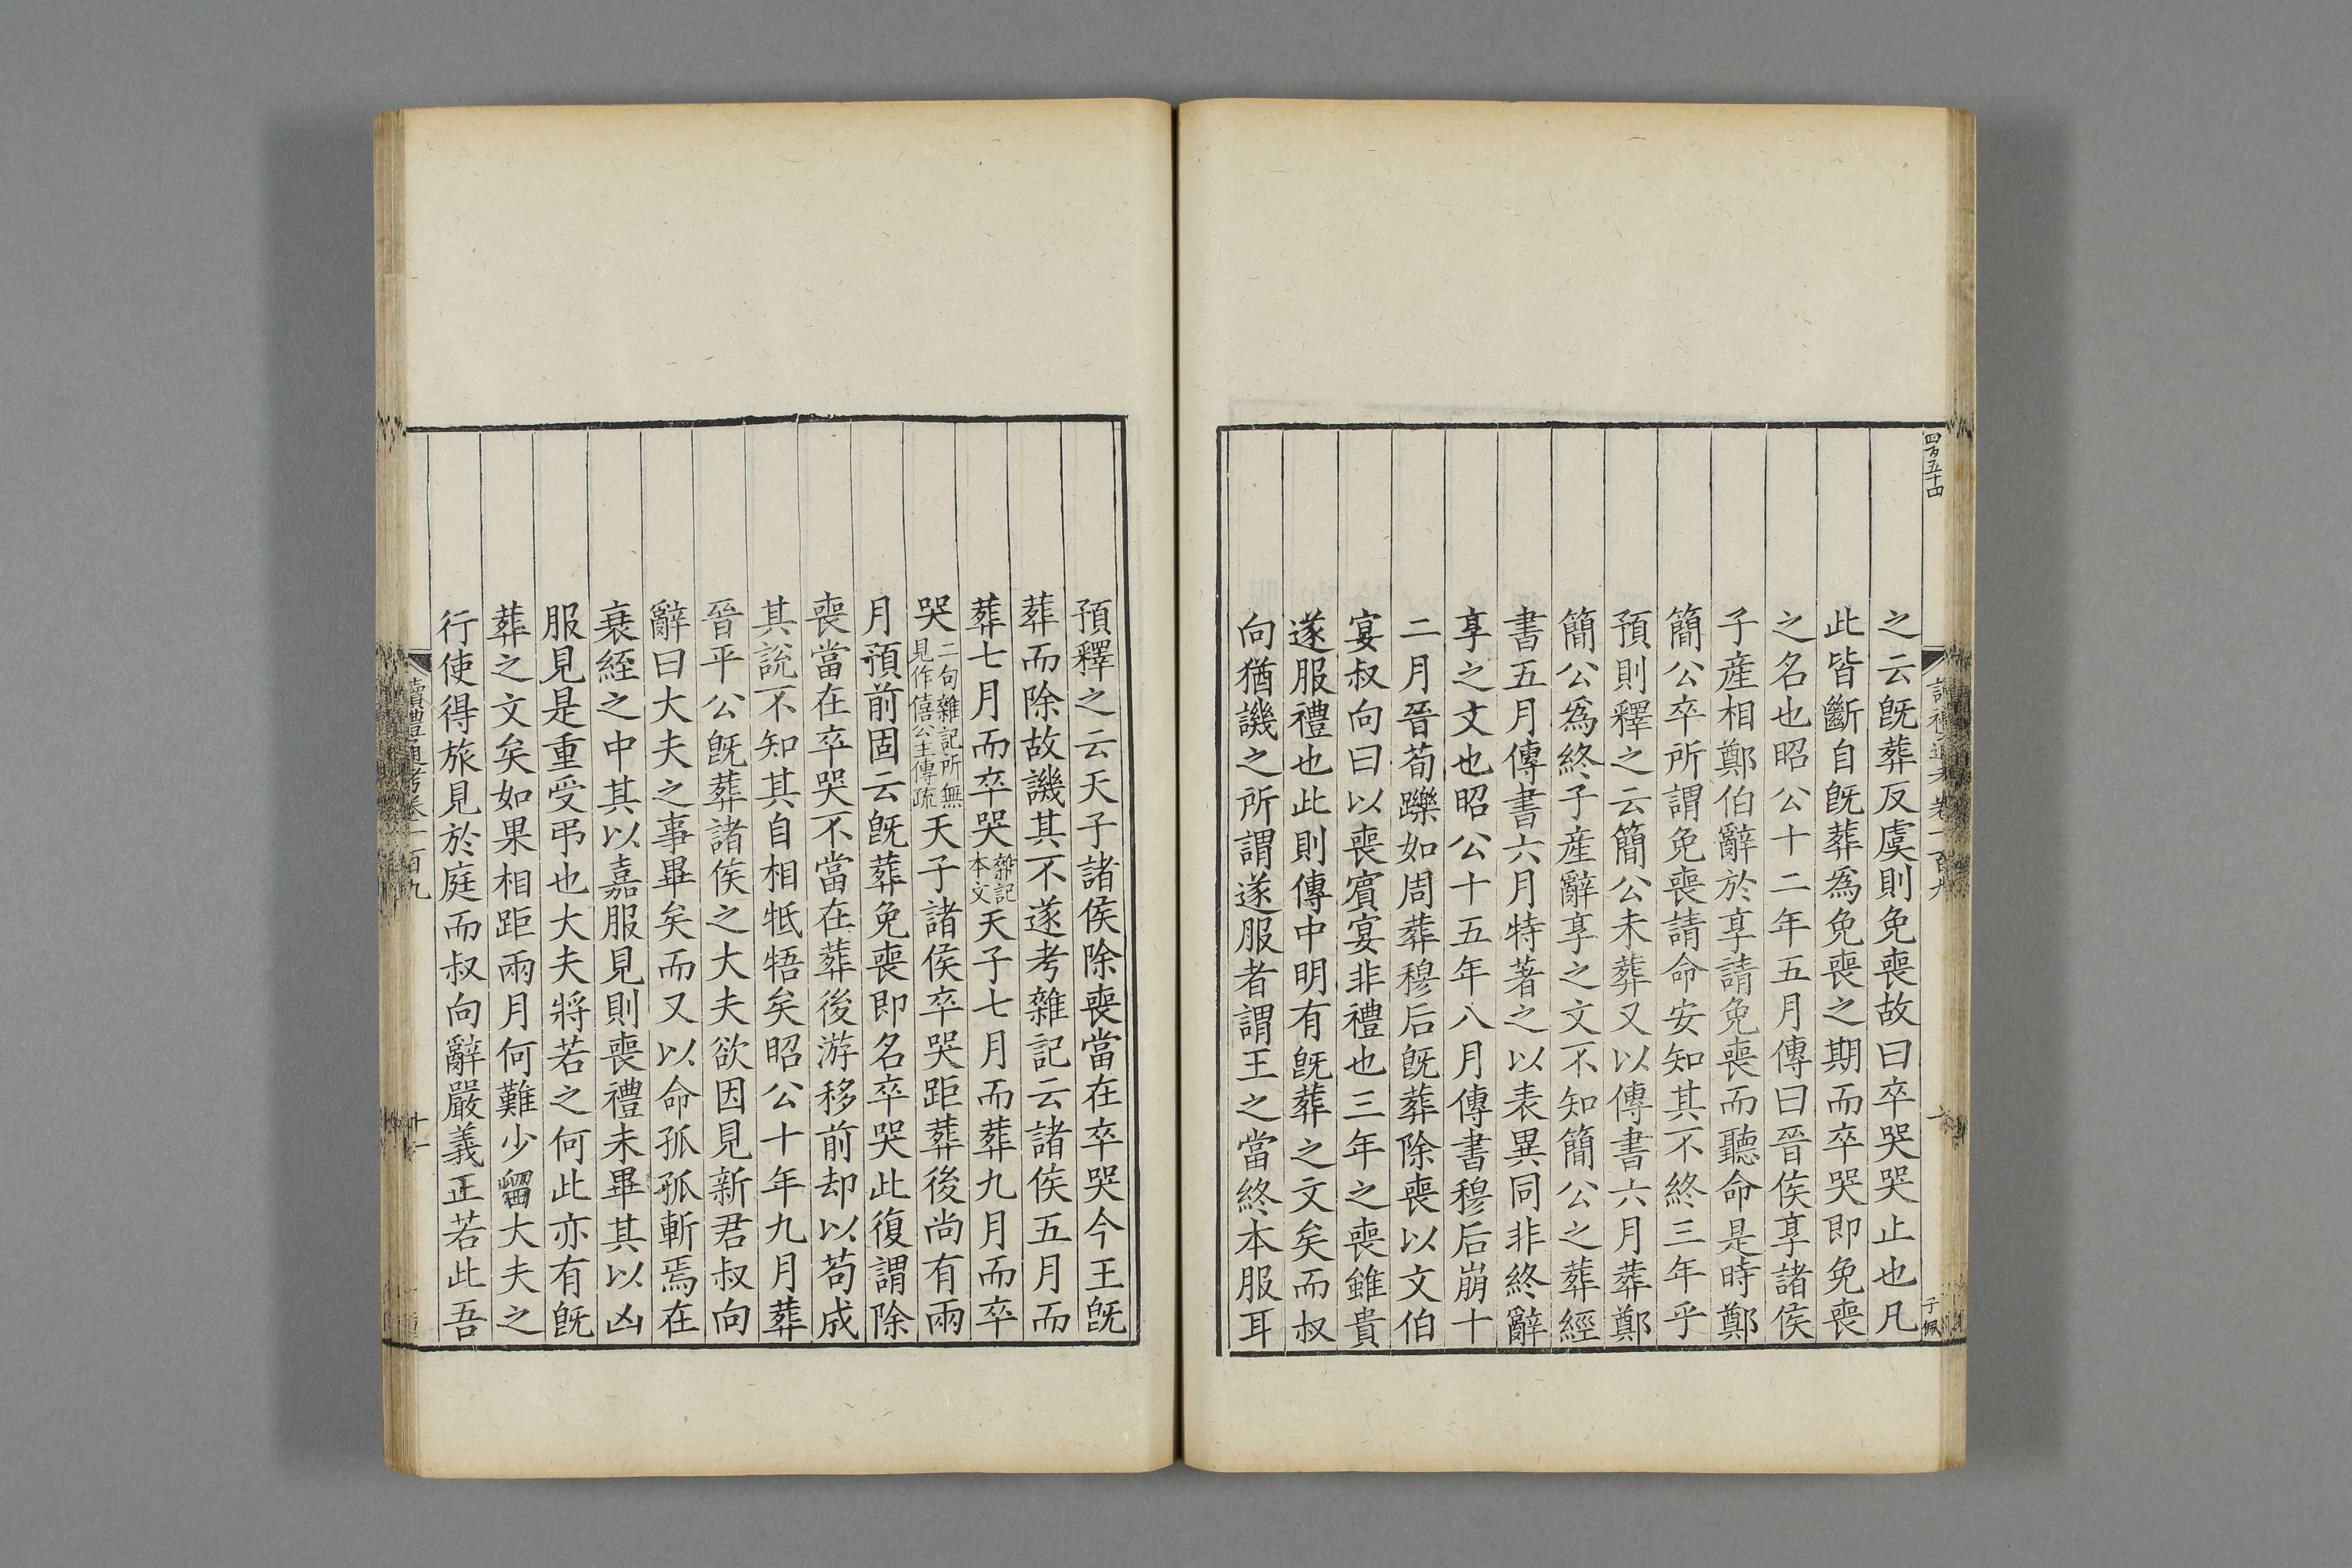 四百五十四
之云既葬反虞則免喪故曰卒哭哭止也凡
此皆斷自既葬爲免喪之期而卒哭即免喪
之名也昭公十二年五月傳曰晉侯享諸侯
子產相鄭伯辭於享請免喪而聽命是時鄭
簡公卒所謂免喪請命安知其不終三年乎
預則釋之云簡公未葬又以傳書六月葬鄭
簡公爲終子產辭享之文不知簡公之葬經
書五月傳書六月特著之以表異同非終辭
享之文也昭公十五年八月傳書穆后崩十
二月晉荀躒如周葬穆后既葬除喪以文伯
宴叔向曰以喪賓宴非禮也三年之喪雖貴
遂服禮也此則傳中明有既葬之文矣而叔
向猶譏之所謂遂服者謂王之當終本服耳
子佩
預釋之云天子諸侯除喪當在卒哭今王既
葬而除故譏其不遂考雜記云諸侯五月而
葬七月而卒哭雜記本文天子七月而葬九月而卒
哭二句雜記所無見作僖公主傳疏天子諸侯卒哭距葬後尚有兩
月預前固云既葬免喪即名卒哭此復謂除
喪當在卒哭不當在葬後游移前却以苟成
其說不知其自相牴牾矣昭公十年九月葬
晉平公既葬諸侯之大夫欲因見新君叔向
辭曰大夫之事畢矣而又以命孤孤斬焉在
衰絰之中其以嘉服見則喪禮未畢其以凶
服見是重受弔也大夫將若之何此亦有既
葬之文矣如果相距兩月何難少留大夫之
行使得旅見於庭而叔向辭嚴義正若此吾
讀禮通考卷一百九
十一